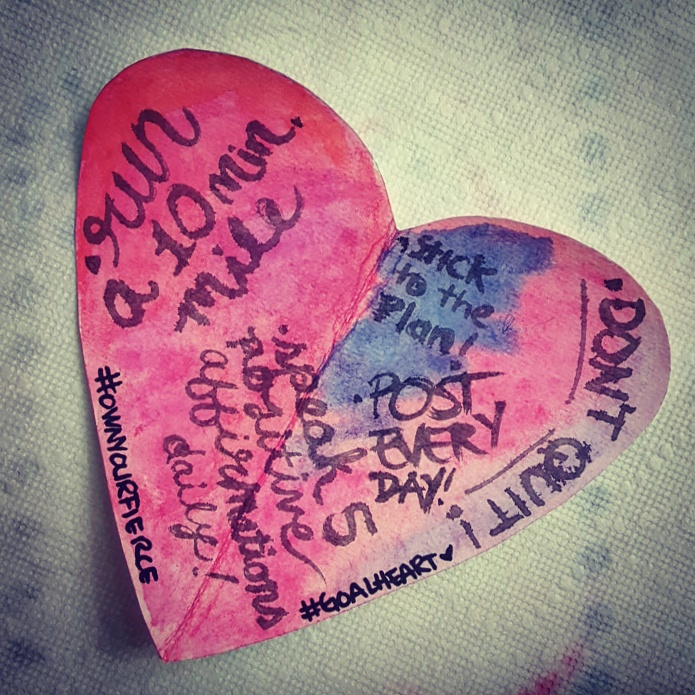 ·run
a 10 min.
mile
·Stick
to the
Plan!
·DON'T QUIT!
·POST
EVERY
DAY!
·speak 5
positive
affirmations
daily!
#OWNYOURFIERCE
#GOALHEART♥